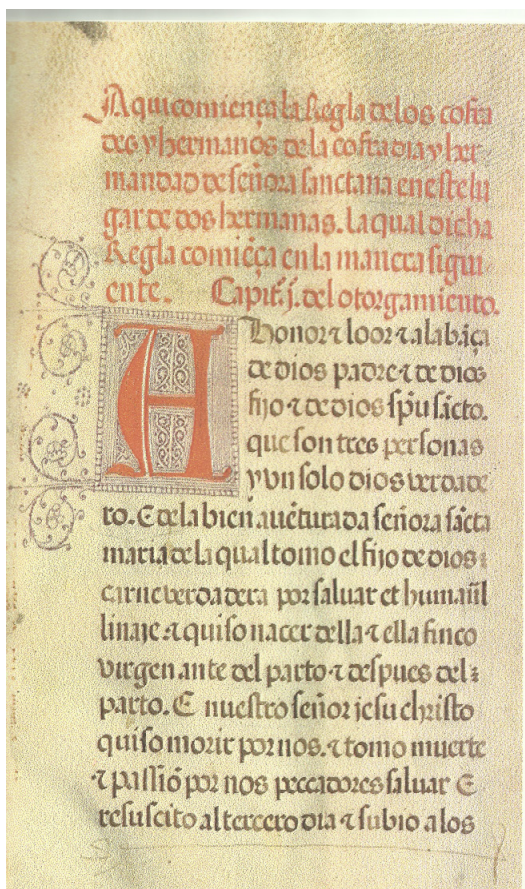 Aqui comiença la Regla de los cofra
des y hermanos de la cofradia y her
mandad de señora sanctana en este lu
gar de dos hermanas. la qual dicha
Regla comiẽça en la manera sigui
ente. Capit. j. del otorgamiento.
A honor ⁊ loor ⁊ alabãça
de dios padre ⁊ de dios
fijo ⁊ de dios spũ sãcto.
que son tres personas
y vn solo dios verdade
ro. E de la bien auẽturada señora sãcta
maria de la qual tomo el fijo de dios
carne verdadera por saluar et humanãl
linaje. ⁊ quiso nacer della ⁊ ella finco
virgen ante del parto ⁊ despues del
parto. E nuestro señor jesu christo
quiso morir por nos. ⁊ tomo muerte
⁊ passiõ por nos peccadores saluar E
resuscito al tercero dia ⁊ subio a los